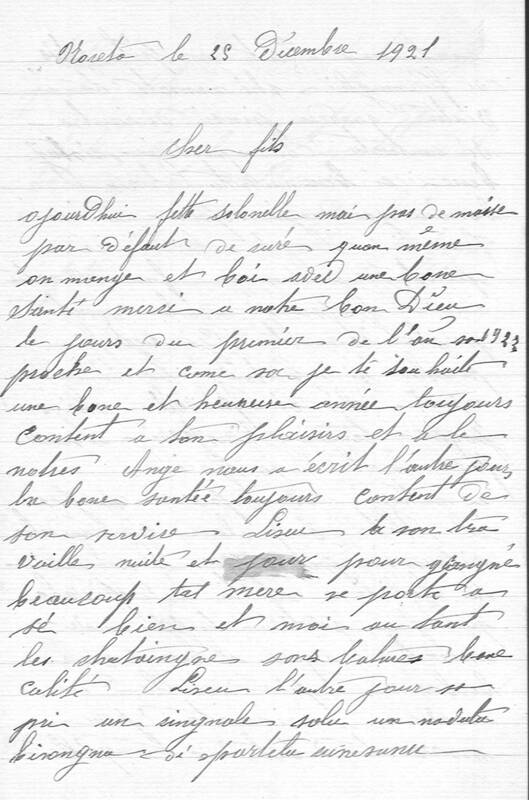 le 25 Décembre 1921
cher fils
ojourdhui fette solonelle mai pas de maisse
par défaut de curé quon même
on mange et boi avec une bone
santé mersi a notre bon Dieu
le jours du premier de l'an 1922
proche et come sa je te souhaite
une bone et heureuse année toujours
content a ton plaisirs et a le
notres Ange nous a écrit l'autre jours
la bone santée toujours content de
son servise a son tra
vaille nuite et jour pour gangné
beaucoup tat mere se porte a
sé bien et moi au tant
les chataingne sons bone
calité l'autre jour
pri un singnale solu un